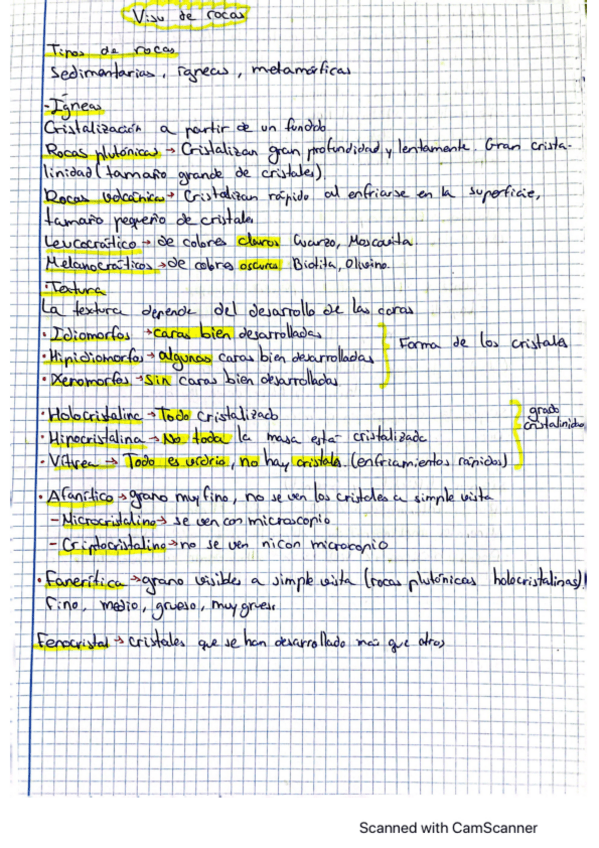 Visu de rocas
Tipos de rocas
Sedimentarias, ígneas, metamórficas
- Ígneas
Cristalización a partir de un fundido
Rocas plutónicas → Cristalizan gran profundidad y lentamente. Gran crista-
linidad (tamaño grande de cristales).
Rocas volcánicas → Cristalizan rápido al enfriarse en la superficie,
tamaño pequeño de cristales
Leucocrático → de colores claros Cuarzo, Moscovita.
Melanocráticos → de colores oscuros Biotita, Olivino.
· Textura
La textura depende del desarrollo de las caras
· Idiomorfos → caras bien desarrolladas
· Hipidiomorfos → algunas caras bien desarrolladas
· Xenomorfos → sin caras bien desarrolladas
Forma de los cristales
· Holocristalina → Todo cristalizado
· Hipocristalina → No toda la masa está cristalizada
· Vítrea → Todo es vidrio, no hay cristales. (enfriamientos rápidos)
grado
cristalinidad
· Afanítico → grano muy fino, no se ven los cristales a simple vista
- Microcristalino → se ven con microscopio
- Criptocristalino → no se ven ni con microscopio
· Fanerítica → grano visibles a simple vista (rocas plutónicas holocristalinas)
Fino, medio, grueso, muy grueso
Fenocristal → cristales que se han desarrollado más que otros
Scanned with CamScanner